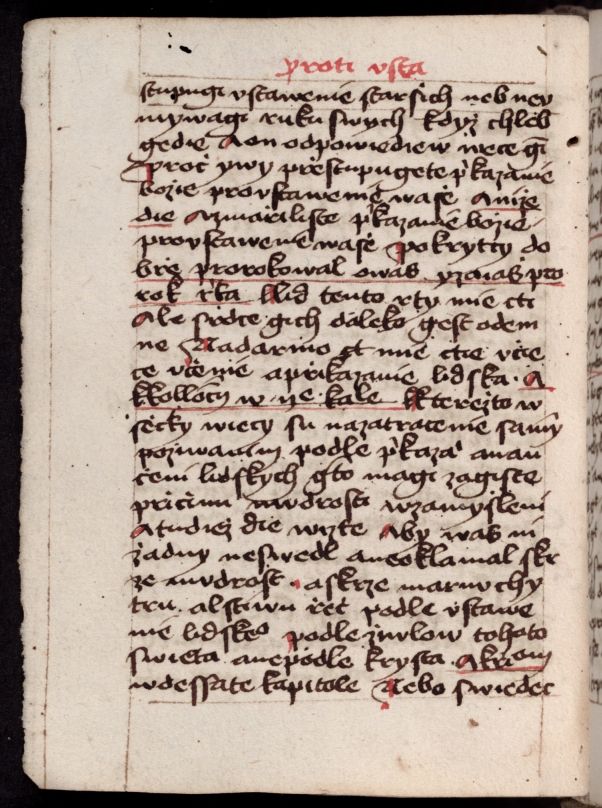 proti vsta
stupugi vstawenie starsich neb nev
mywagi ruku swych kdyz chleb
gedie A on odpowiediew wece gi
Proč ywy přestupugete p'kazanie
bozie pro vstawenie wasse A niže
die A zmařiliste p'kazanie bozie
pro vstawenie wasse pokrytcy do
bře prorokowal owas yzaias pro
rok řka Lid tento rty mie cti
Ale srdce gich daleko gest odem
ne Nadarmo ct mie ctie včie
ce včenie a přikazanie lidska · A
kkollocen w · ne · kale kterezto w
secky wiecy su na zatracenie samy
pozywanim podle p'kaza a nau
čeni lidskych gto magi zagiste
přičinu mudrosti w zamysleni
A tudiez die wizte Aby was ni
zadny neswedl aneoklamal skr
ze mudrost · a skrze marnu chy
tru · al stiwu řeč podle vstawe
nie lidske° podle ziwlow tohoto
swieta · a nepodle krysta · A k řiom
w dessate kapitole Nebo swiedec